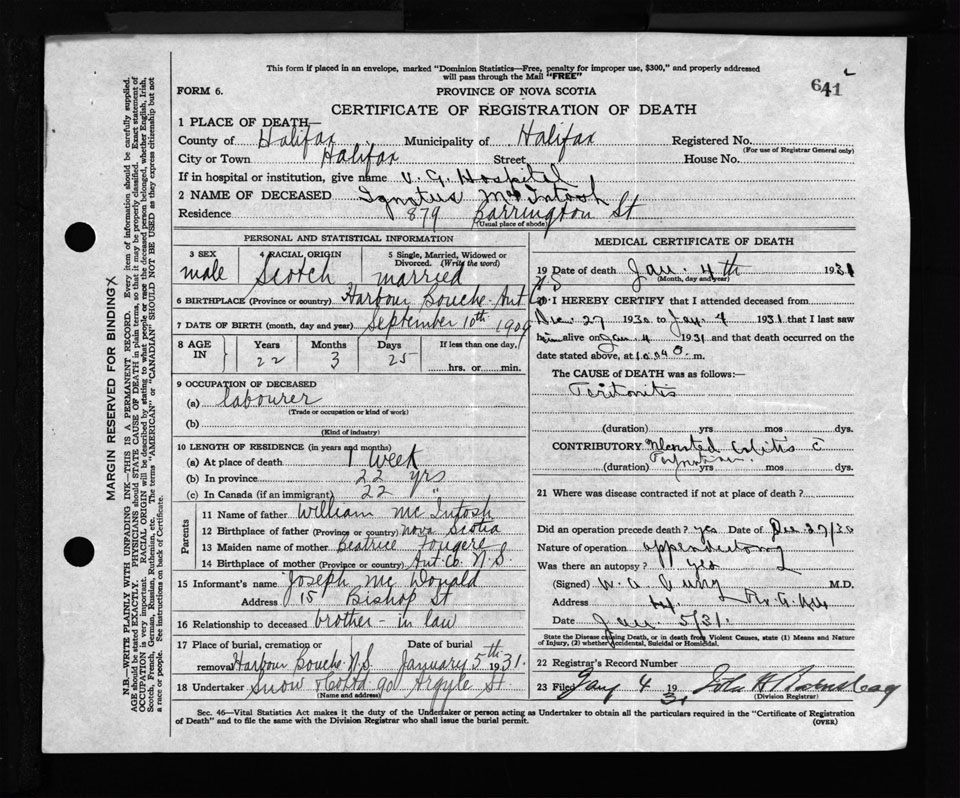 This form if placed in an envelope, marked "Dominion Statistics—Free, penalty for improper use, $300," and properly addressed
will pass through the Mail "FREE"
641
FORM 6.
PROVINCE OF NOVA SCOTIA
CERTIFICATE OF REGISTRATION OF DEATH
1 PLACE OF DEATH
County of Halifax Municipality of Halifax Registered No.
(For use of Registrar General only)
City or Town Halifax Street House No.
If in hospital or institution, give name V. G. Hospital
2 NAME OF DECEASED Ignatius McIntosh
Residence 879 Barrington St
(Usual place of abode)
PERSONAL AND STATISTICAL INFORMATION
3 SEX 4 RACIAL ORIGIN 5 Single, Married, Widowed or
Divorced. (Write the word)
male Scotch married
6 BIRTHPLACE (Province or country) Harbour Bouche Ant Co. N S
7 DATE OF BIRTH (month, day and year) September 10th 1909
8 AGE IN Years Months Days If less than one day,
22 3 25 hrs. or min.
9 OCCUPATION OF DECEASED
(a) labourer
(Trade or occupation or kind of work)
(b)
(Kind of industry)
10 LENGTH OF RESIDENCE (in years and months)
(a) At place of death 1 Week
(b) In province 22 yrs
(c) In Canada (if an immigrant) 22 "
Parents
11 Name of father William McIntosh
12 Birthplace of father (Province or country) Nova Scotia
13 Maiden name of mother Beatrice Fougere
14 Birthplace of mother (Province or country) Ant. Co. N.S.
15 Informant's name Joseph McDonald
Address 15 Bishop St
16 Relationship to deceased brother-in law
17 Place of burial, cremation or Date of burial
removal Harbour Bouche N.S. January 5th 1931.
18 Undertaker Snow & Co Ltd 90 Argyle St.
MEDICAL CERTIFICATE OF DEATH
19 Date of death Jan. 4th 1931
(Month, day and year)
20 I HEREBY CERTIFY that I attended deceased from
Dec. 27 1930 to Jan. 4 1931 that I last saw
him alive on Jan 4 1931 and that death occurred on the
date stated above, at m.
The CAUSE of DEATH was as follows:—
Peritonitis
(duration) yrs mos. dys.
CONTRIBUTORY
(duration) yrs mos dys.
21 Where was disease contracted if not at place of death?
Did an operation precede death? yes Date of Dec 27/30
Nature of operation appendectomy
Was there an autopsy? yes
(Signed) W. A. M.D.
Address
Date Jan 5/31.
State the Disease causing Death, or in death from Violent Causes, state (1) Means and Nature
of Injury, (2) whether Accidental, Suicidal or Homicidal.
22 Registrar's Record Number
23 Filed Jany 4 1931
(Division Registrar)
Sec. 46—Vital Statistics Act makes it the duty of the Undertaker or person acting as Undertaker to obtain all the particulars required in the "Certificate of Registration
of Death" and to file the same with the Division Registrar who shall issue the burial permit.
(OVER)
MARGIN RESERVED FOR BINDING X
N.B.—WRITE PLAINLY WITH UNFADING INK—THIS IS A PERMANENT RECORD. Every item of information should be carefully supplied.
AGE should be stated EXACTLY. PHYSICIANS should STATE CAUSE OF DEATH in plain terms, so that it may be properly classified. Exact statement of
OCCUPATION is very important. RACIAL ORIGIN will be described by stating to what people or race the deceased person belonged, whether English, Irish,
Scotch, French, German, Russian, Ruthenian, etc. The terms "AMERICAN" or "CANADIAN" SHOULD NOT BE USED as they express citizenship but not
a race or people. See instructions on back of Certificate.